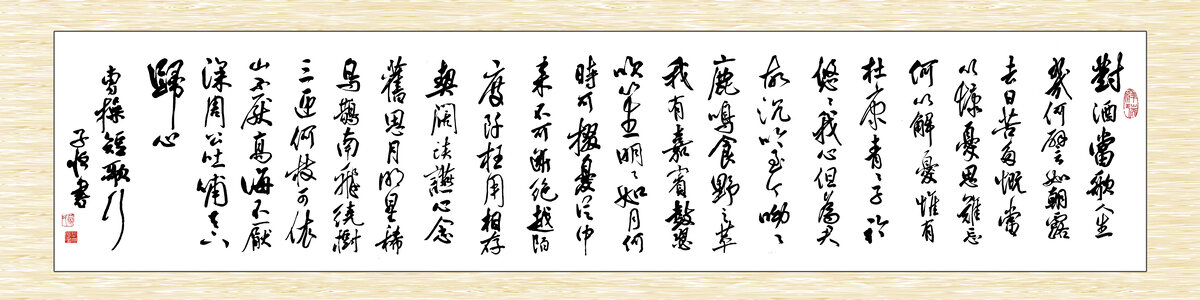 對酒當歌人生
幾何譬如朝露
去日苦多慨當
以慷憂思難忘
何以解憂惟有
杜康青〻子衿
悠〻我心但為君
故沉吟至今呦〻
鹿鳴食野之苹
我有嘉賓鼓瑟
吹笙明〻如月何
時可掇憂從中
來不可斷絕越陌
度阡枉用相存
契闊談讌心念
舊恩月明星稀
烏鵲南飛繞樹
三匝何枝可依
山不厭高海不厭
深周公吐哺天下
歸心
曹操短歌行
子 書